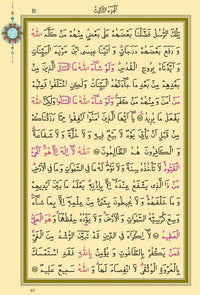 الجزء الثالث
تِلْكَ الرُّسُلُ فَضَّلْنَا بَعْضَهُمْ عَلَىٰ بَعْضٍ مِنْهُمْ مَنْ كَلَّمَ اللَّهُ
وَ رَفَعَ بَعْضَهُمْ دَرَجَاتٍ وَ آتَيْنَا عِيسَى ابْنَ مَرْيَمَ الْبَيِّنَاتِ
وَ أَيَّدْنَاهُ بِرُوحِ الْقُدُسِ وَ لَوْ شَاءَ اللَّهُ مَا اقْتَتَلَ الَّذِينَ مِنْ
بَعْدِهِمْ مِنْ بَعْدِ مَا جَاءَتْهُمُ الْبَيِّنَاتُ وَلَٰكِنِ اخْتَلَفُوا فَمِنْهُمْ
مَنْ آمَنَ وَ مِنْهُمْ مَنْ كَفَرَ وَ لَوْ شَاءَ اللَّهُ مَا اقْتَتَلُوا وَلَٰكِنَّ اللَّهَ
يَفْعَلُ مَا يُرِيدُ يَا أَيُّهَا الَّذِينَ آمَنُوا أَنْفِقُوا مِمَّا رَزَقْنَاكُمْ
مِنْ قَبْلِ أَنْ يَأْتِيَ يَوْمٌ لَا بَيْعٌ فِيهِ وَ لَا خُلَّةٌ وَ لَا شَفَاعَةٌ
وَ الْكَافِرُونَ هُمُ الظَّالِمُونَ اللَّهُ لَا إِلَٰهَ إِلَّا هُوَ الْحَيُّ
الْقَيُّومُ لَا تَأْخُذُهُ سِنَةٌ وَ لَا نَوْمٌ لَهُ مَا فِي السَّمَاوَاتِ وَ مَا فِي الْأَرْضِ
مَنْ ذَا الَّذِي يَشْفَعُ عِنْدَهُ إِلَّا بِإِذْنِهِ يَعْلَمُ مَا بَيْنَ أَيْدِيهِمْ
وَ مَا خَلْفَهُمْ وَ لَا يُحِيطُونَ بِشَيْءٍ مِنْ عِلْمِهِ إِلَّا بِمَا شَاءَ
وَسِعَ كُرْسِيُّهُ السَّمَاوَاتِ وَ الْأَرْضَ وَ لَا يَؤُودُهُ حِفْظُهُمَا وَ هُوَ الْعَلِيُّ
الْعَظِيمُ لَا إِكْرَاهَ فِي الدِّينِ قَدْ تَبَيَّنَ الرُّشْدُ مِنَ الْغَيِّ
فَمَنْ يَكْفُرْ بِالطَّاغُوتِ وَ يُؤْمِنْ بِاللَّهِ فَقَدِ اسْتَمْسَكَ
بِالْعُرْوَةِ الْوُثْقَىٰ لَا انْفِصَامَ لَهَا وَ اللَّهُ سَمِيعٌ عَلِيمٌ